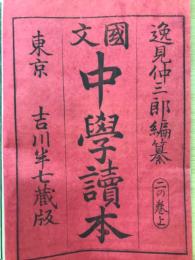 逸見仲三郎編纂
二の巻上
國文
中學讀本
東京 吉川半七藏版